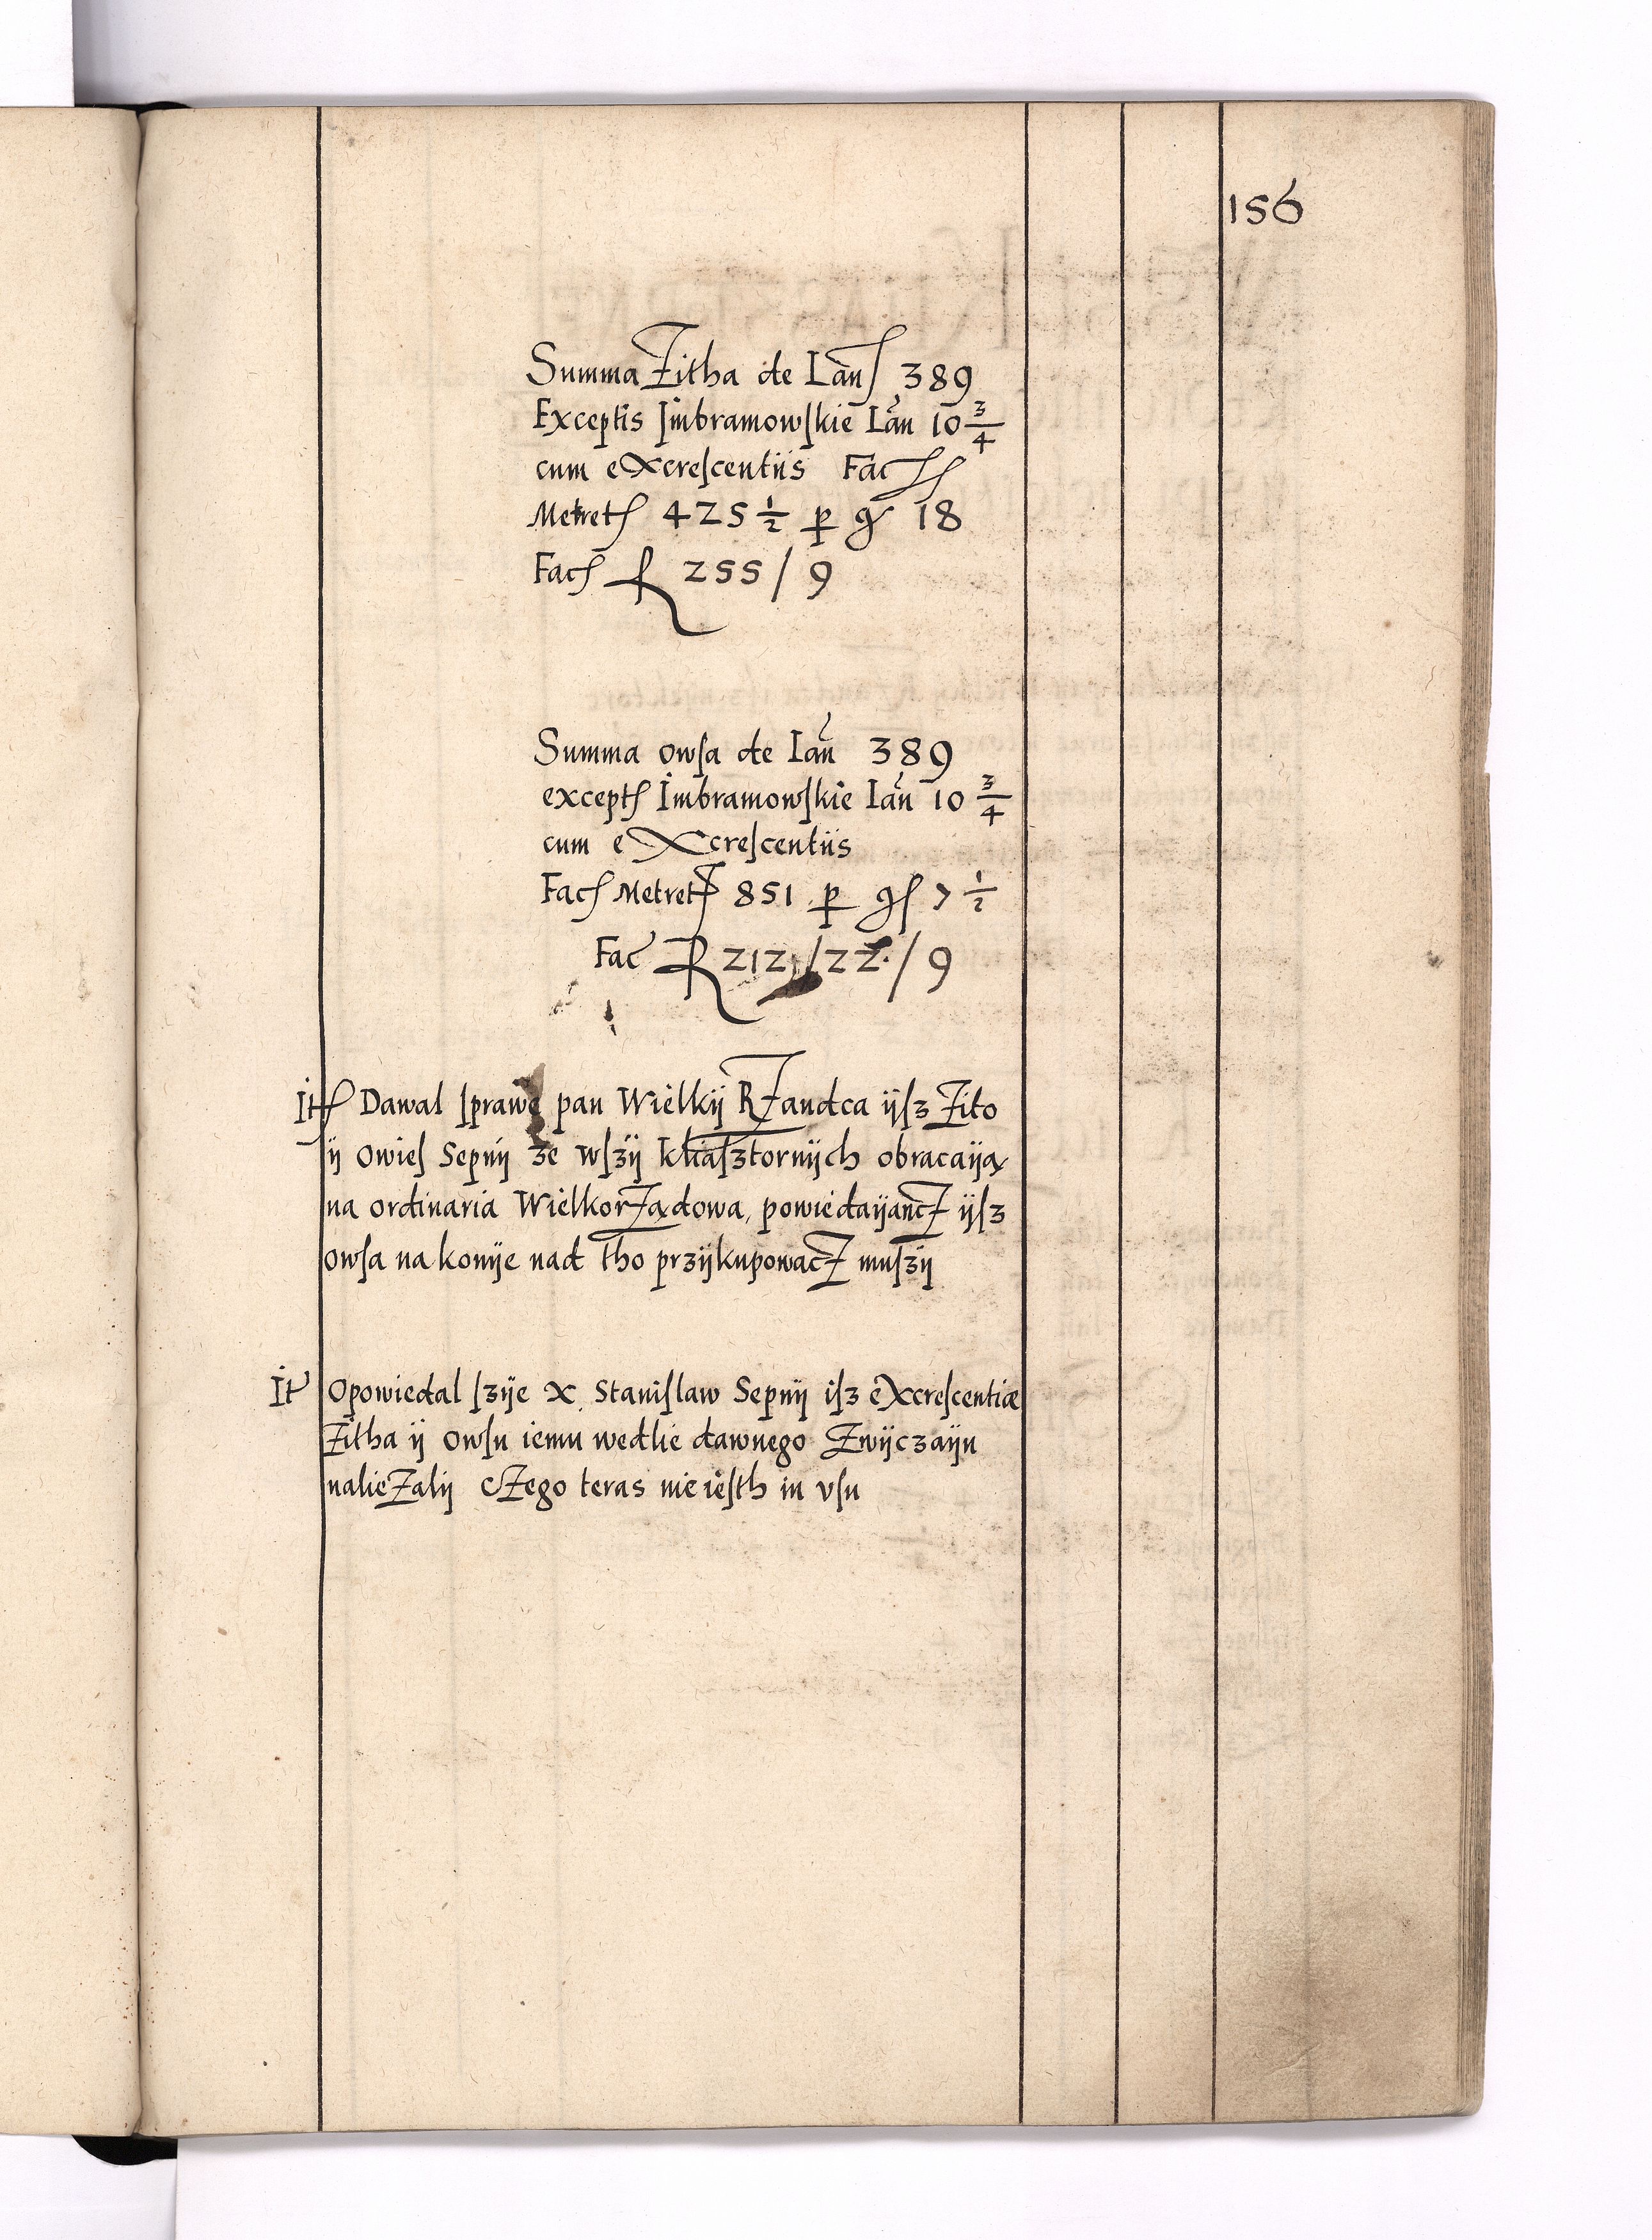 156
Summa Żitha de Lanſ 389
Exceptis Imbramowſkie Lan 10 3/4
cum eXcreſcentiis Facſſ
Metretſ 425 1/2 p gr 18
Facſ ƒ 255 / 9
Summa owſa de Lan 389
exceptſ Imbramowſkie Lan 10 3/4
cum eXcreſcentiis
Facſ Metretſ 851 p gſ 7 1/2
Fac ƒ 212 / 22 / 9
Itſ Dawal ſprawę pan Wielkij RŻandca ijſz Żito
ij owieſ Sepnij ze wſzij kliaſztornijch obracaija
na ordinaria WielkorŻądowa, powiedaijancŻ ijſz
owſa na konije nad tho przijkupowacŻ muſzij
It Opowiedal ſzije x. Staniſlaw Sepnij iſz eXcreſcentiæ
Żitha ij owſu iemu wedlie dawnego Zwijczaiju
nalieŻalij cŻego teras nie ieſth in vſu